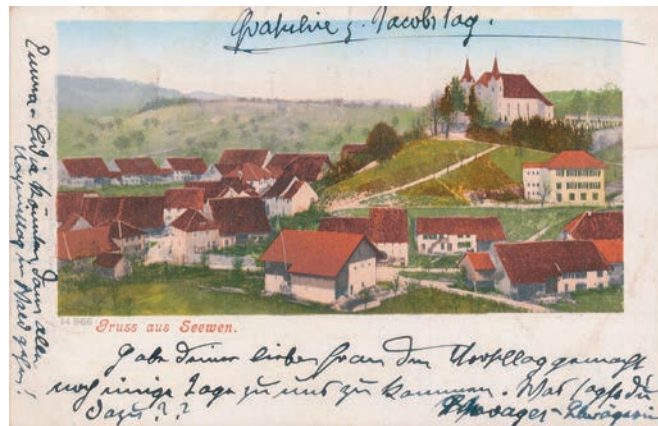 Gratulire z. Jacobstag.
Emma + Lidia könnten dann allen
Nachmittag in Wald gehen!
14 966 Gruss aus Seewen.
Habe Deiner lieben Frau den Vorschlag gemacht
noch einige Tage zu uns zu kommen. Was sagst du
dazu??
Schwager + Schwägerin